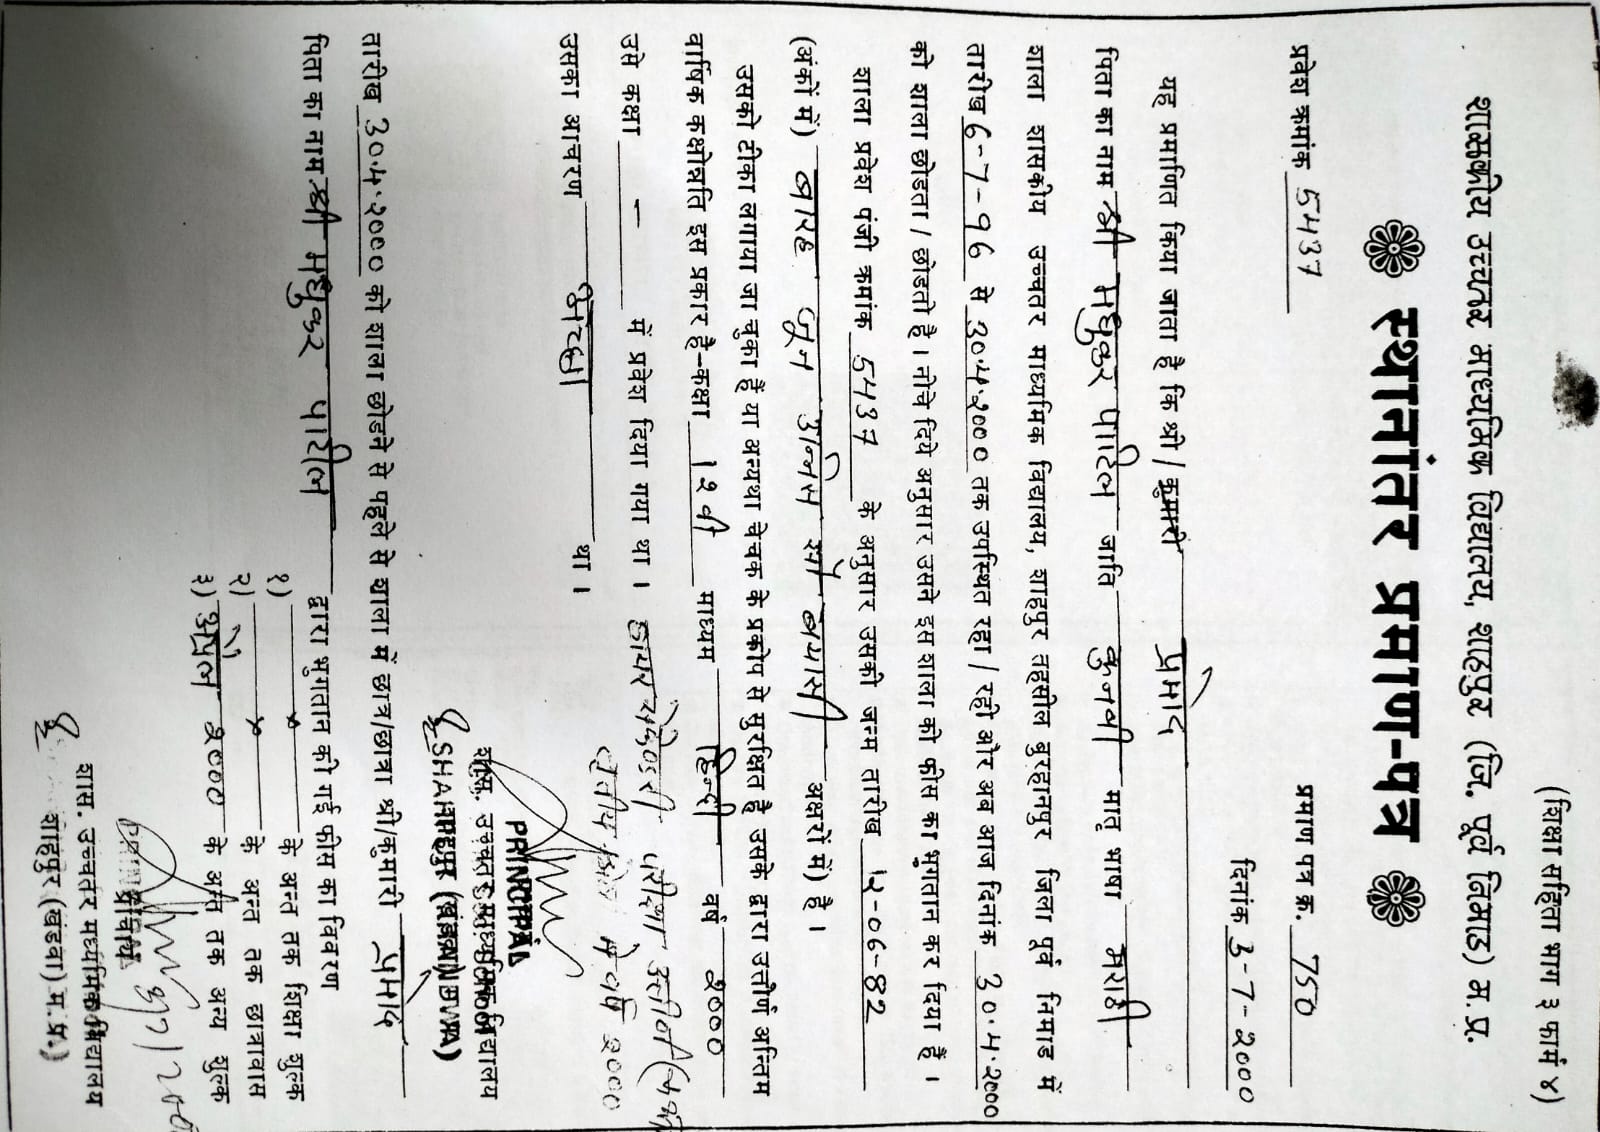 (शिक्षा संहिता भाग ३ फार्म ४)
शासकीय उच्चतर माध्यमिक विद्यालय, शाहपुर (जि. पूर्व निमाड) म.प्र.
स्थानांतर प्रमाण-पत्र
प्रवेश क्रमांक 5437 प्रमाण पत्र क्र. 750
दिनांक 3-7-2000
यह प्रमाणित किया जाता है कि श्री/कुमारी प्रमोद
पिता का नाम श्री मधुकर पाटिल जाति कुनबी मातृ भाषा मराठी
शाला शासकीय उच्चतर माध्यमिक विद्यालय, शाहपुर तहसील बुरहानपुर जिला पूर्व निमाड में
तारीख 6-7-96 से 30.4.2000 तक उपस्थित रहा/रही और अब आज दिनांक 30.4.2000
को शाला छोडता/छोडती है। नीचे दिये अनुसार उसने इस शाला की फीस का भुगतान कर दिया है।
शाला प्रवेश पंजी क्रमांक 5437 के अनुसार उसकी जन्म तारीख 12-06-82
(अंकों में) बारह जून उन्नीस सौ बयासी अक्षरों में) है।
उसको टीका लगाया जा चुका हैं या अन्यथा चेचक के प्रकोप से सुरक्षित है उसके द्वारा उत्तीर्ण अन्तिम
वार्षिक कक्षोन्नति इस प्रकार है-कक्षा 12 वी माध्यम हिन्दी वर्ष 2000
उसे कक्षा — में प्रवेश दिया गया था। हायर सेकेण्डरी परीक्षा उत्तीर्ण
वर्ष 2000
उसका आचरण अच्छा था।
PRINCIPAL
शास. उच्चतर माध्यमिक विद्यालय
SHAHPUR (KHANDWA)
तारीख 30.4.2000 को शाला छोडने से पहले से शाला में छात्र/छात्रा श्री/कुमारी प्रमोद
पिता का नाम श्री मधुकर पाटील द्वारा भुगतान की गई फीस का विवरण
१) × के अन्त तक शिक्षा शुल्क
२) × के अन्त तक छात्रावास
३) अप्रैल 2000 के अन्त तक अन्य शुल्क
प्राचार्य
शास. उच्चतर माध्यमिक विद्यालय
शाहपुर (खंडवा) म.प्र.